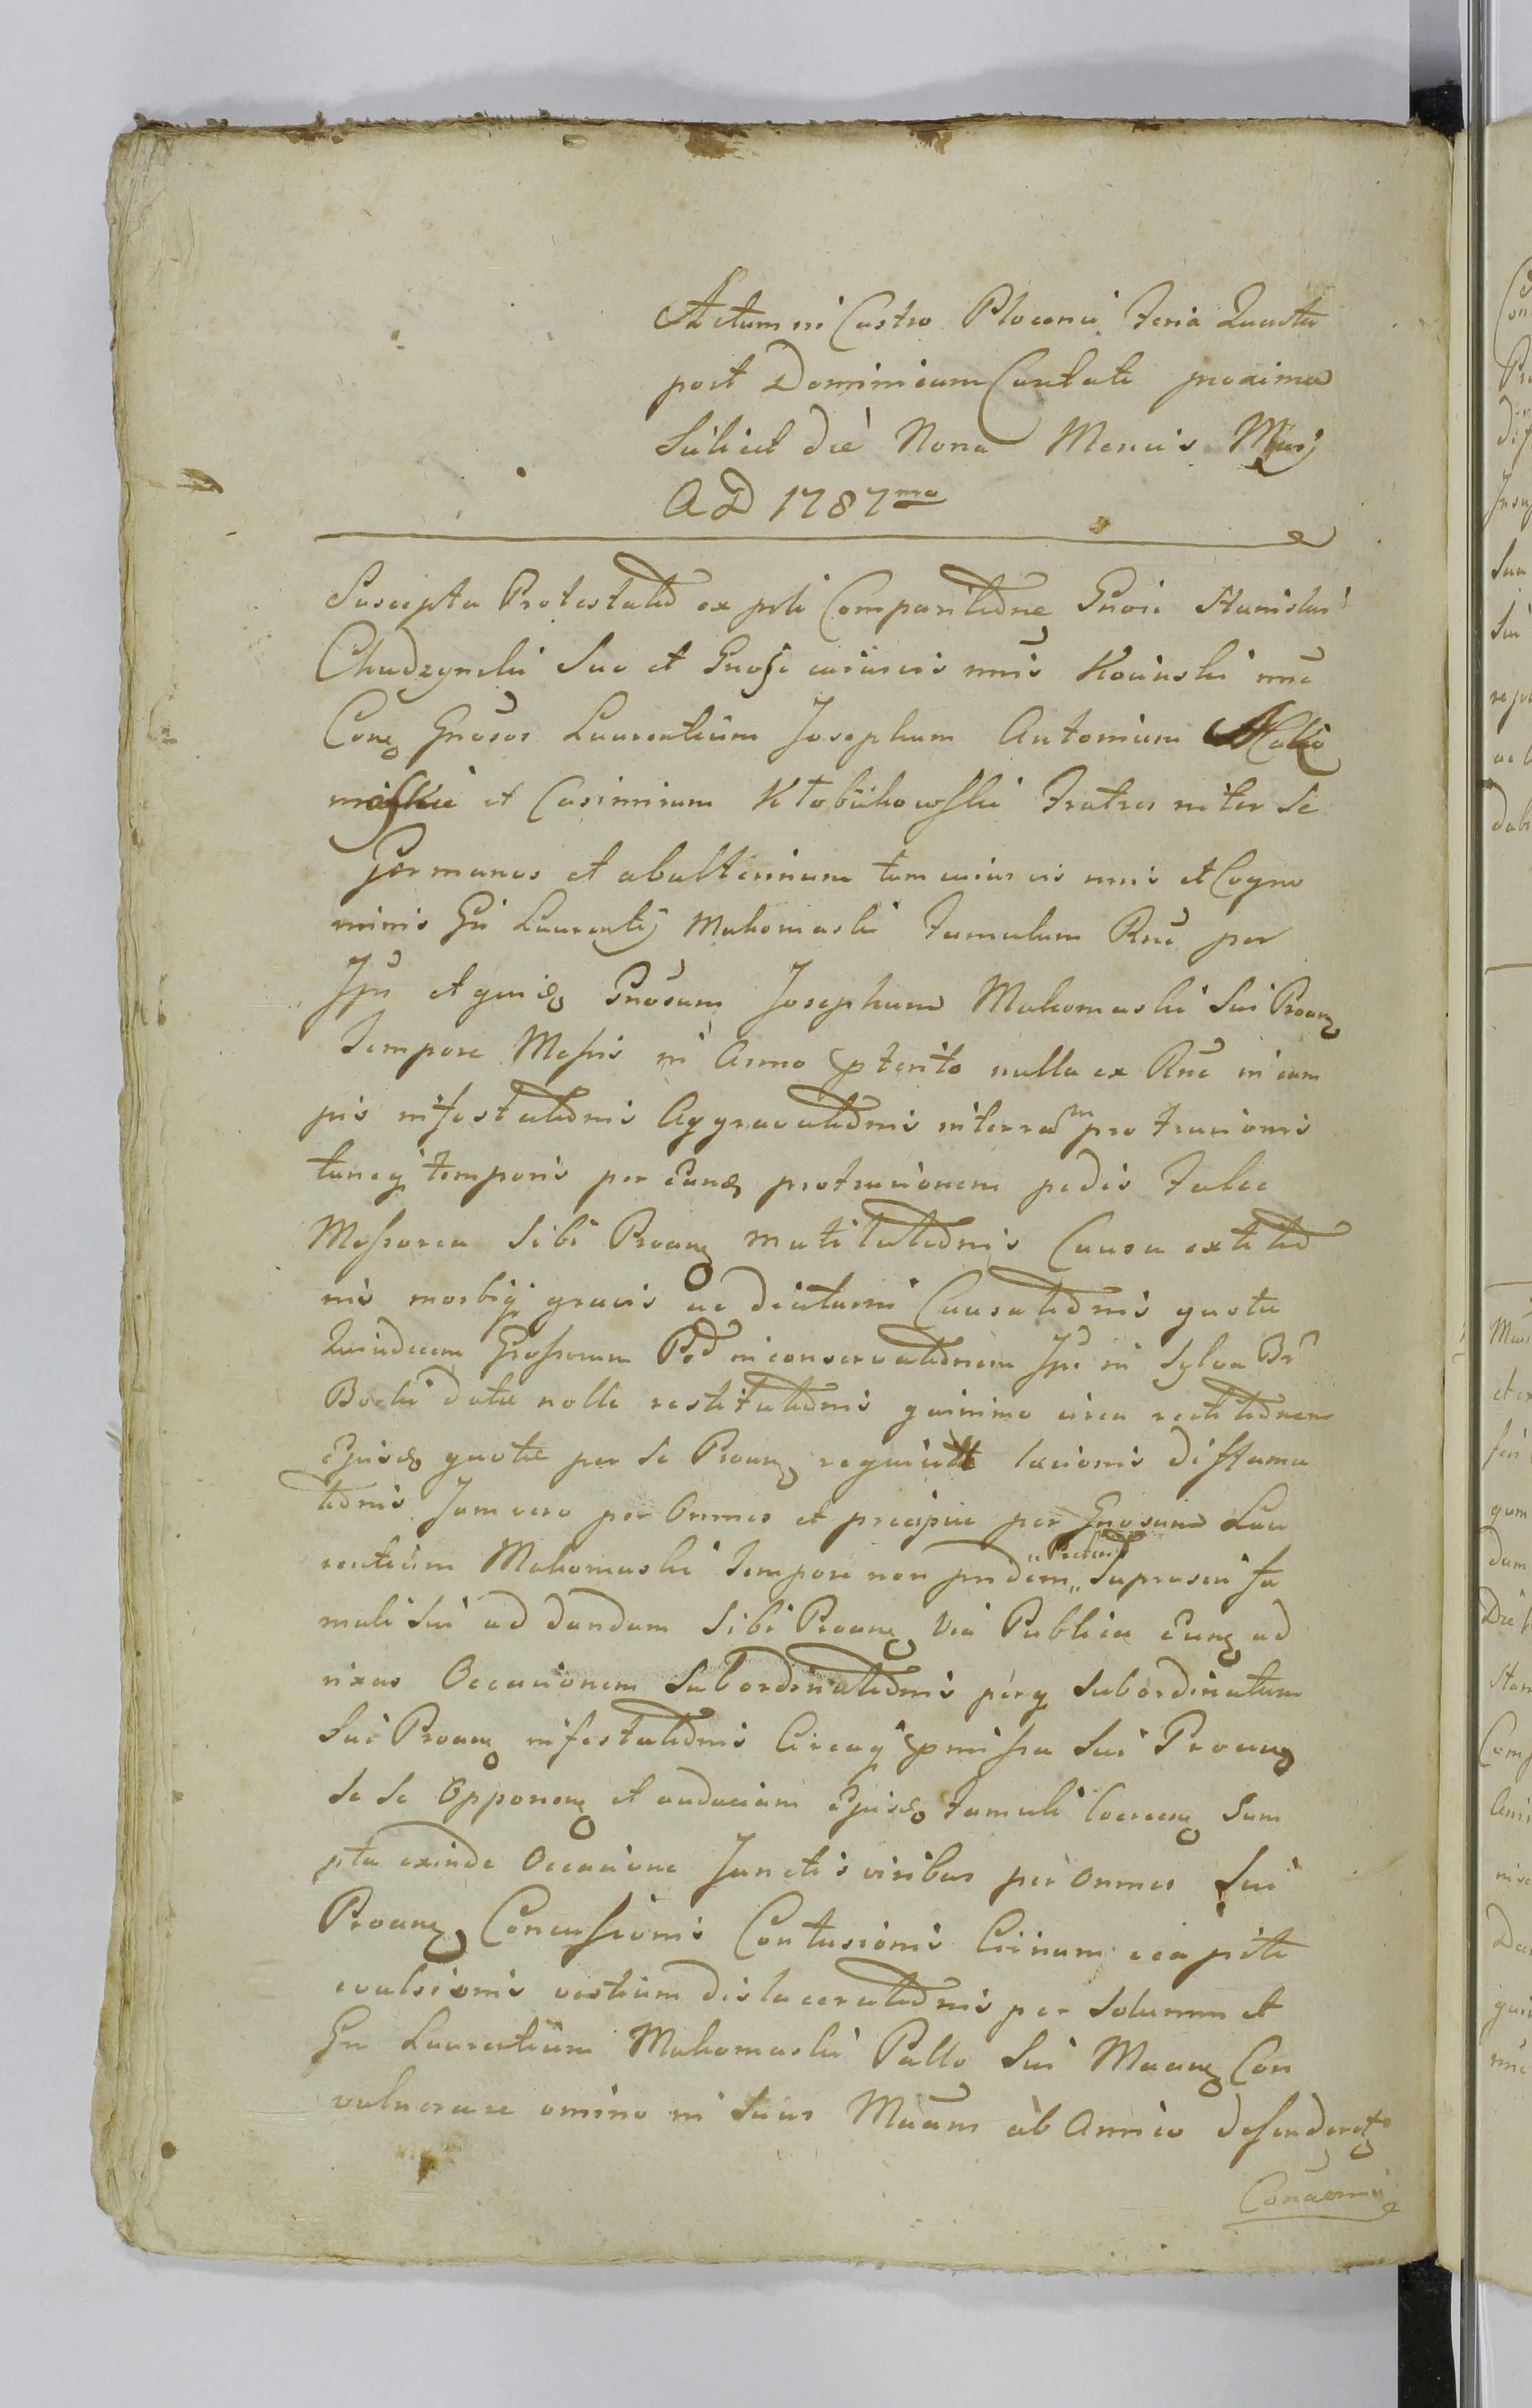 Actum in Castro Plocensi Feria Quarta
post Dominicam Cantate proxima
Scilicet die Nona Mensis Maij
AD 1787mo
Suscepta Protestatio ex psli Comparitione Gnosi Stanislai
Chudzynski Suo et Gnosi cuiusvis nnis Kocinski nne
Cone Gnosos Laurentium Josephum Antonium
et Casimirum Kłobukowski Fratres inter se
Germanos et ab alterinum tum cuiusvis nnis et Cogno
minis Gsi Laurentij Makomaski Famulum Rne per
Ips et gnisq Gnosum Josephum Makomaski Sui Proan
Tempore Messis in Anno pterito nulla ex Rne in cam
pis infestationis Aggravationis interram protrusionis
tuncq temporis per Eund protrusionem pedis Falce
Messorea Sibi Proan mutilationis Causa extitio
nis morbiq gravis ac diuturni Causationis quota
Quindecem Grossorum Pol in conservationem Ipsi in Sylva
Borki data nolle restitutionis quinimo circa rectitionem
Ejusd quota per se Proan laesionis diffama
tionis Jam vero per Omnes et precipue per Gnosum Lau
rentium Makomaski Tempore non pridem Suprascri fa
muli Sui ad dandam Sibi Proan Via Publica Eund ad
rixas Occasionem Subordinationis perq Subordinatum
Sui Proan infestationis Circaq pmissa Sui Proan
Se Se Opponen et audaciam Ejusd Famuli Coercen Sum
pta exinde Occasione Junctis viribus per Omnes Sui
Proan Concussionis Contusionis Crinum e capite
evulsionis vestium dislacerationis per Solummet
Gn Laurentium Makomaski Pallo Sui Maan Con
vulnerare omino ni suas Manus ab Amico defenderet